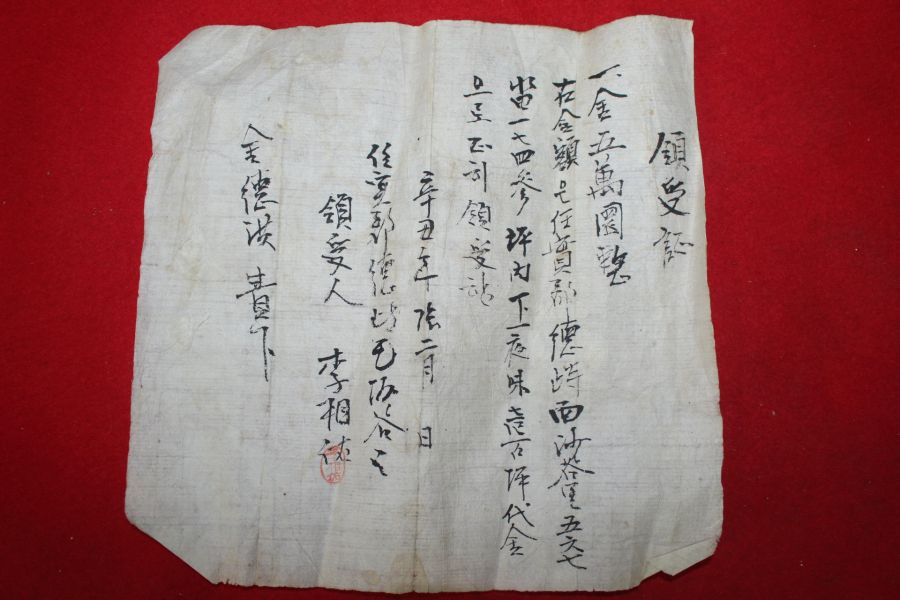 領受証
一, 金五萬圜整
右金額은 任實郡 德峙面 沙谷里 五六七
畓 一七四參坪內 下一夜味 壱百坪代金
으로 正히 領受함
辛丑年 陰二月 日
任實郡 德峙
領受人 李相
金德洪 貴下